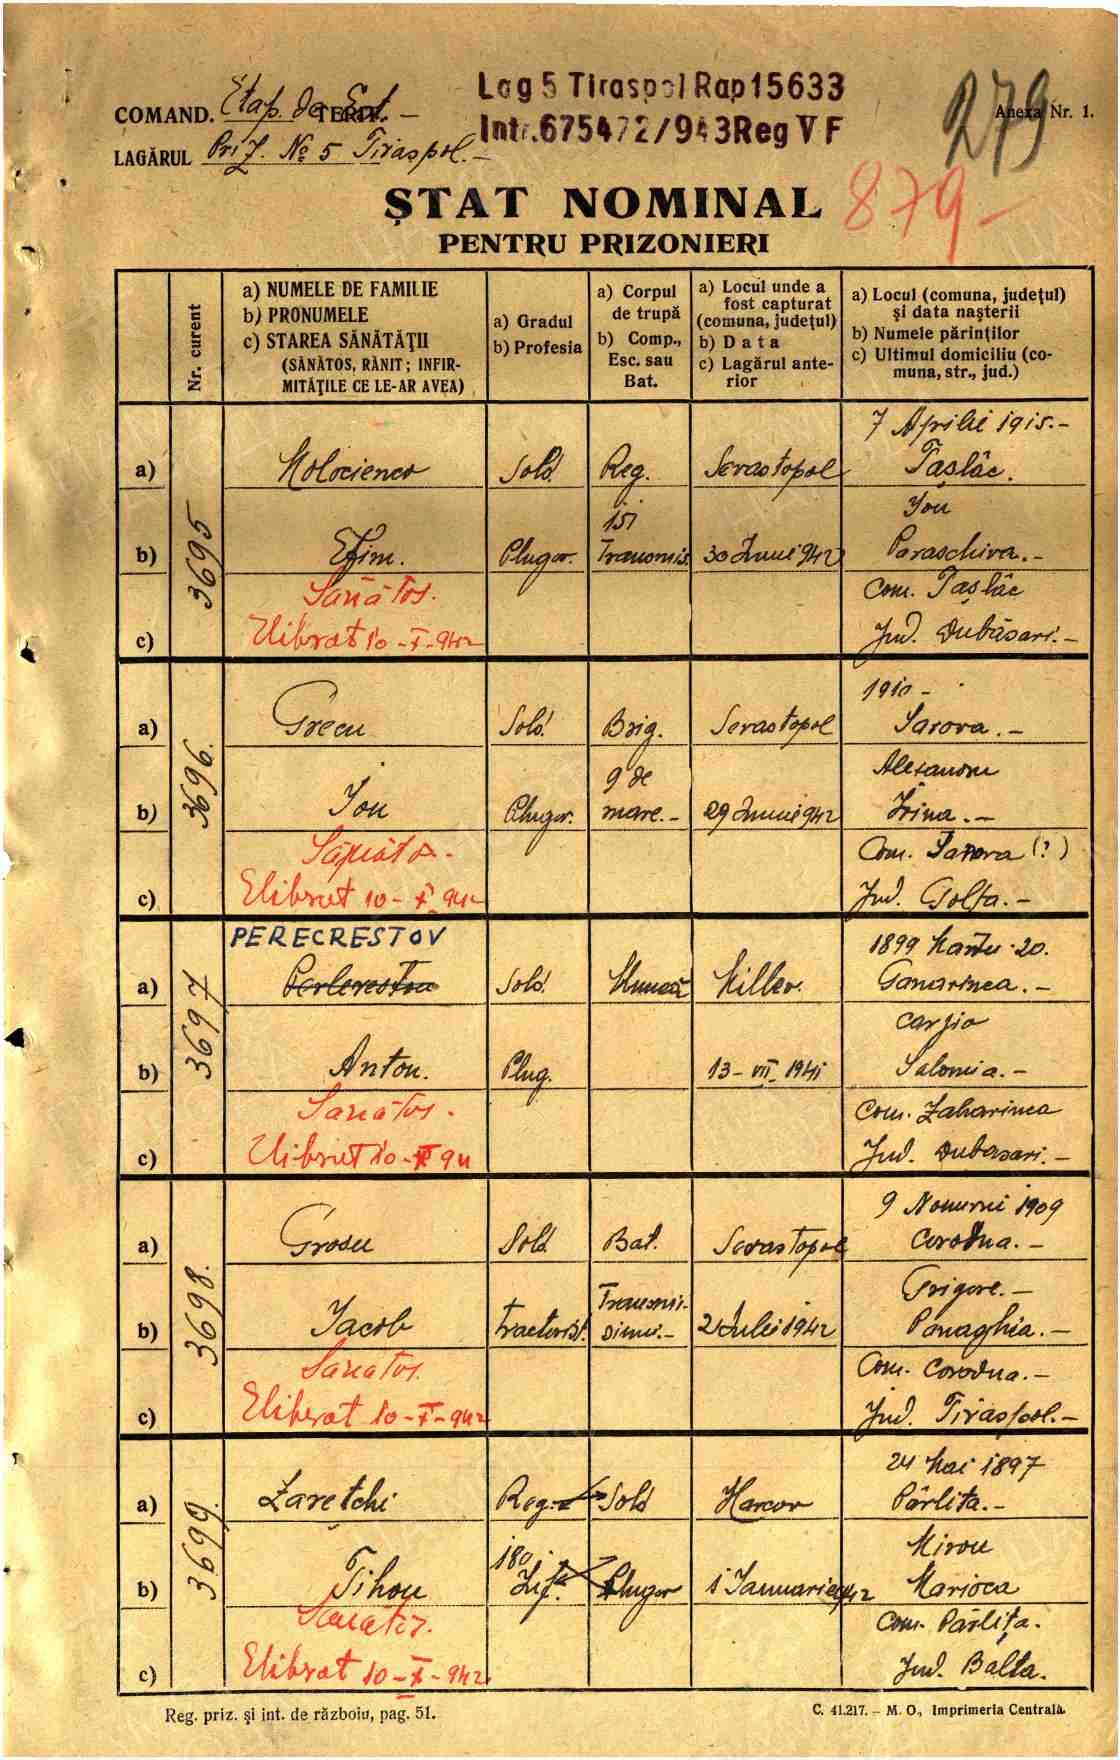 Lag 5 Tiraspol Rap 15633
Intr. 675472/943 Reg V F
279
Anexa Nr. 1.
COMAND. Etap. de Est. - TERIT.
LAGĂRUL Priz. No 5 Tiraspol. -
ȘTAT NOMINAL
879 -
PENTRU PRIZONIERI
Nr. curent
a) NUMELE DE FAMILIE
b) PRONUMELE
c) STAREA SĂNĂTĂȚII
(SĂNĂTOS, RĂNIT; INFIR-
MITĂȚILE CE LE-AR AVEA)
a) Gradul
b) Profesia
a) Corpul
de trupă
b) Comp.,
Esc. sau
Bat.
a) Locul unde a
fost capturat
(comuna, județul)
b) Data
c) Lagărul ante-
rior
a) Locul (comuna, județul)
și data nașterii
b) Numele părinților
c) Ultimul domiciliu (co-
muna, str., jud.)
3695
7 Aprilie 1915. -
a) Molocienco Sold. Reg. Sevastopol Tașlâc.
151 Ion
b) Efim. Plugar. Transmis. 30 Iunie 942 Paraschiva. -
Sănătos. Com. Tașlâc
c) Elibrat 10-X-942 Jud. Dubăsari. -
3696.
1910 -
a) Grecu Sold. Brig. Sevastopol Sarova. -
9 de Alexandru
b) Ion Plugar. mare. - 29 Iunie 942 Irina. -
Sănătos. Com. Sarova (?)
c) Elibrat 10-X-942 Jud. Golta. -
3697
PERECRESTOV 1899 Martie 20.
a) Sold. Muncă Miller.
b) Anton. Plug. 13-VII-1941 Salomia. -
Sanătos. Com. Zaharinca
c) Elibrat 10-X 94 Jud. Dubasari. -
3698.
9 1909
a) Grosu Sold. Bat. Sevastopol Corodna. -
Transmi- Grigore. -
b) Iacob tractorist. siuni. - 2 Iulie 1942 Panaghia. -
Sanatos. Com. Corodna. -
c) Eliberat 10-X-942 Jud. Tiraspol. -
3699.
24 Mai 1897
a) Zarețchi Reg. Sold Harcov Pârlița. -
180. Miron
b) Tihon Inf. Plugar 1 Ianuarie 942 Marioca
Sanatos. Com. Pârlița.
c) Elibrat 10-X-942 Jud. Balta.
Reg. priz. și int. de războiu, pag. 51.
C. 41.217. - M. O., Imprimeria Centrală.